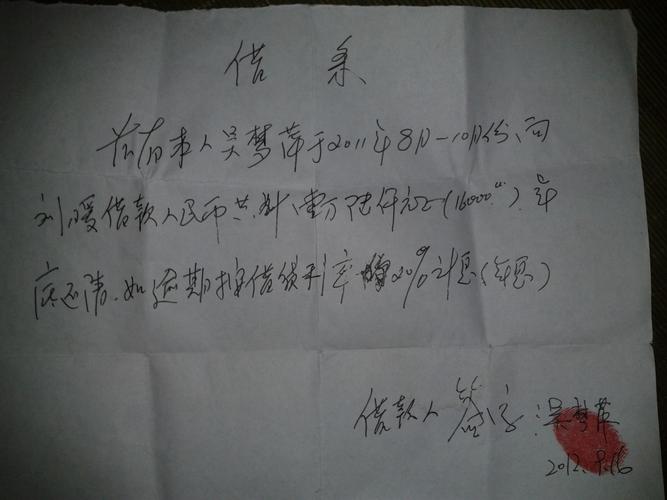 借条
兹有本人吴梦萍于2011年8月-10月份、向
刘媛借款人民币共计、壹万陆仟元正(16000.00)年
底还清.如逾期按借贷利率20%计息(年息)
借款人 签字:吴梦萍
2012.9.16